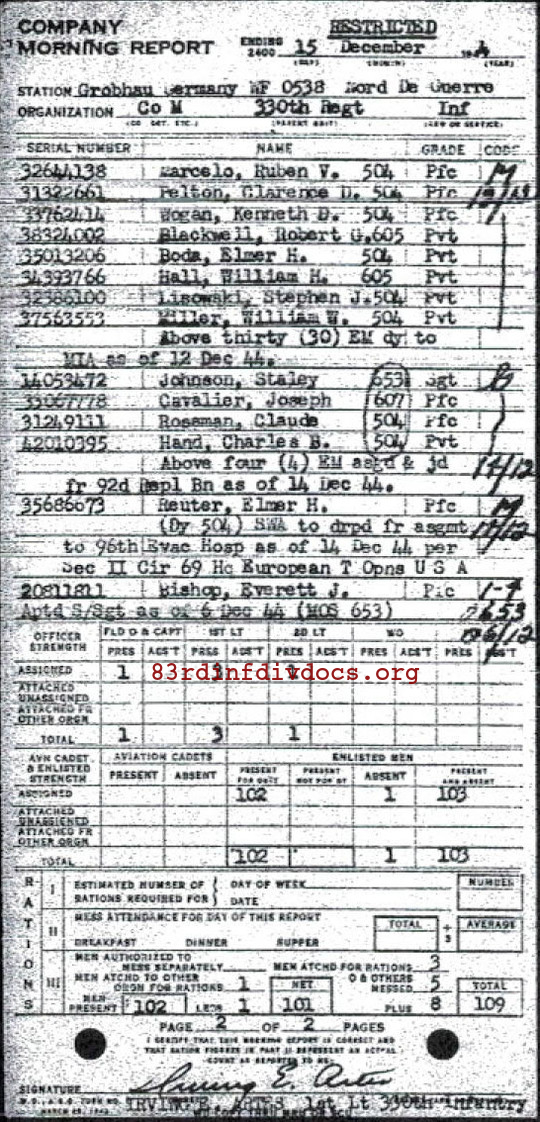 COMPANY RESTRICTED
MORNING REPORT ENDING 2400 15 December 1944
(DAY) (MONTH) (YEAR)
STATION Grobhau Germany WF 0538 Nord De Guerre
ORGANIZATION Co M 330th Regt Inf
(CO DET. ETC.) (PARENT UNIT) (ARM OR SERVICE)
SERIAL NUMBER NAME GRADE CODE
32644138 Marcelo, Ruben V. 504 Pfc M
31322661 Pelton, Clarence D. 504 Pfc
33762414 Wogan, Kenneth D. 504 Pfc
38324002 Blackwell, Robert G.605 Pvt
35013206 Boda, Elmer H. 504 Pvt
34393766 Hall, William H. 605 Pvt
32386100 Lisowski, Stephen J.504 Pvt
37563553 Miller, William W. 504 Pvt
Above thirty (30) EM dy to
MIA as of 12 Dec 44.
14053472 Johnson, Staley 653 Sgt
Cavalier, Joseph 607 Pfc
31249111 Rossman, Claude 504 Pfc
42010395 Hand, Charles B. 504 Pvt
Above four (4) EM asgd & jd 14/12
fr 92d Repl Bn as of 14 Dec 44.
35686673 Reuter, Elmer H. Pfc M
(Dy 504) SWA to drpd fr asgmt 14/12
to 96th Evac Hosp as of 14 Dec 44 per
Sec II Cir 69 Hq European T Opns U S A
20811811 Bishop, Everett J. Pfc
Aptd S/Sgt as of 6 Dec 44 (MOS 653) 653
6/12
OFFICER STRENGTH FLD O & CAPT 1ST LT 2D LT WO
PRES ABS'T PRES ABS'T PRES ABS'T PRES ABS'T PRES ABS'T
ASSIGNED 1 3 1
83rdinfdivdocs.org
ATTACHED UNASSIGNED
ATTACHED FR OTHER ORGN
TOTAL 1 3 1
AVN CADET & ENLISTED STRENGTH AVIATION CADETS ENLISTED MEN
PRESENT ABSENT PRESENT FOR DUTY PRESENT NOT FOR DY ABSENT PRESENT AND ABSENT
ASSIGNED 102 1 103
ATTACHED UNASSIGNED
ATTACHED FR OTHER ORGN
TOTAL 102 1 103
RATIONS
I ESTIMATED NUMBER OF RATIONS REQUIRED FOR { DAY OF WEEK DATE NUMBER
II MESS ATTENDANCE FOR DAY OF THIS REPORT TOTAL ÷ 3 AVERAGE
BREAKFAST DINNER SUPPER
III MEN AUTHORIZED TO MESS SEPARATELY MEN ATCHD FOR RATIONS 3
MEN ATCHD TO OTHER ORGN FOR RATIONS 1 NET O & OTHERS MESSED 5 TOTAL
MEN PRESENT 102 LESS 1 101 PLUS 8 109
PAGE 2 OF 2 PAGES
I CERTIFY THAT THIS MORNING REPORT IS CORRECT AND
THAT RATION FIGURES IN PART III REPRESENT AN ACTUAL
COUNT AS REPORTED TO ME:
SIGNATURE Irving E. Artes
W.D., A.G.O. FORM NO. IRVING E. ARTES 1st Lt 330th Infantry